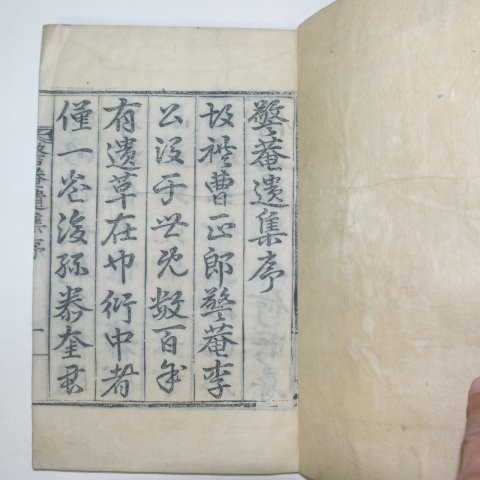 警菴遺集序
故禮曹正郎警菴李
公沒于世旣數百年
有遺草在巾衍中者
僅一卷後孫泰奎君
警菴遺集序
一